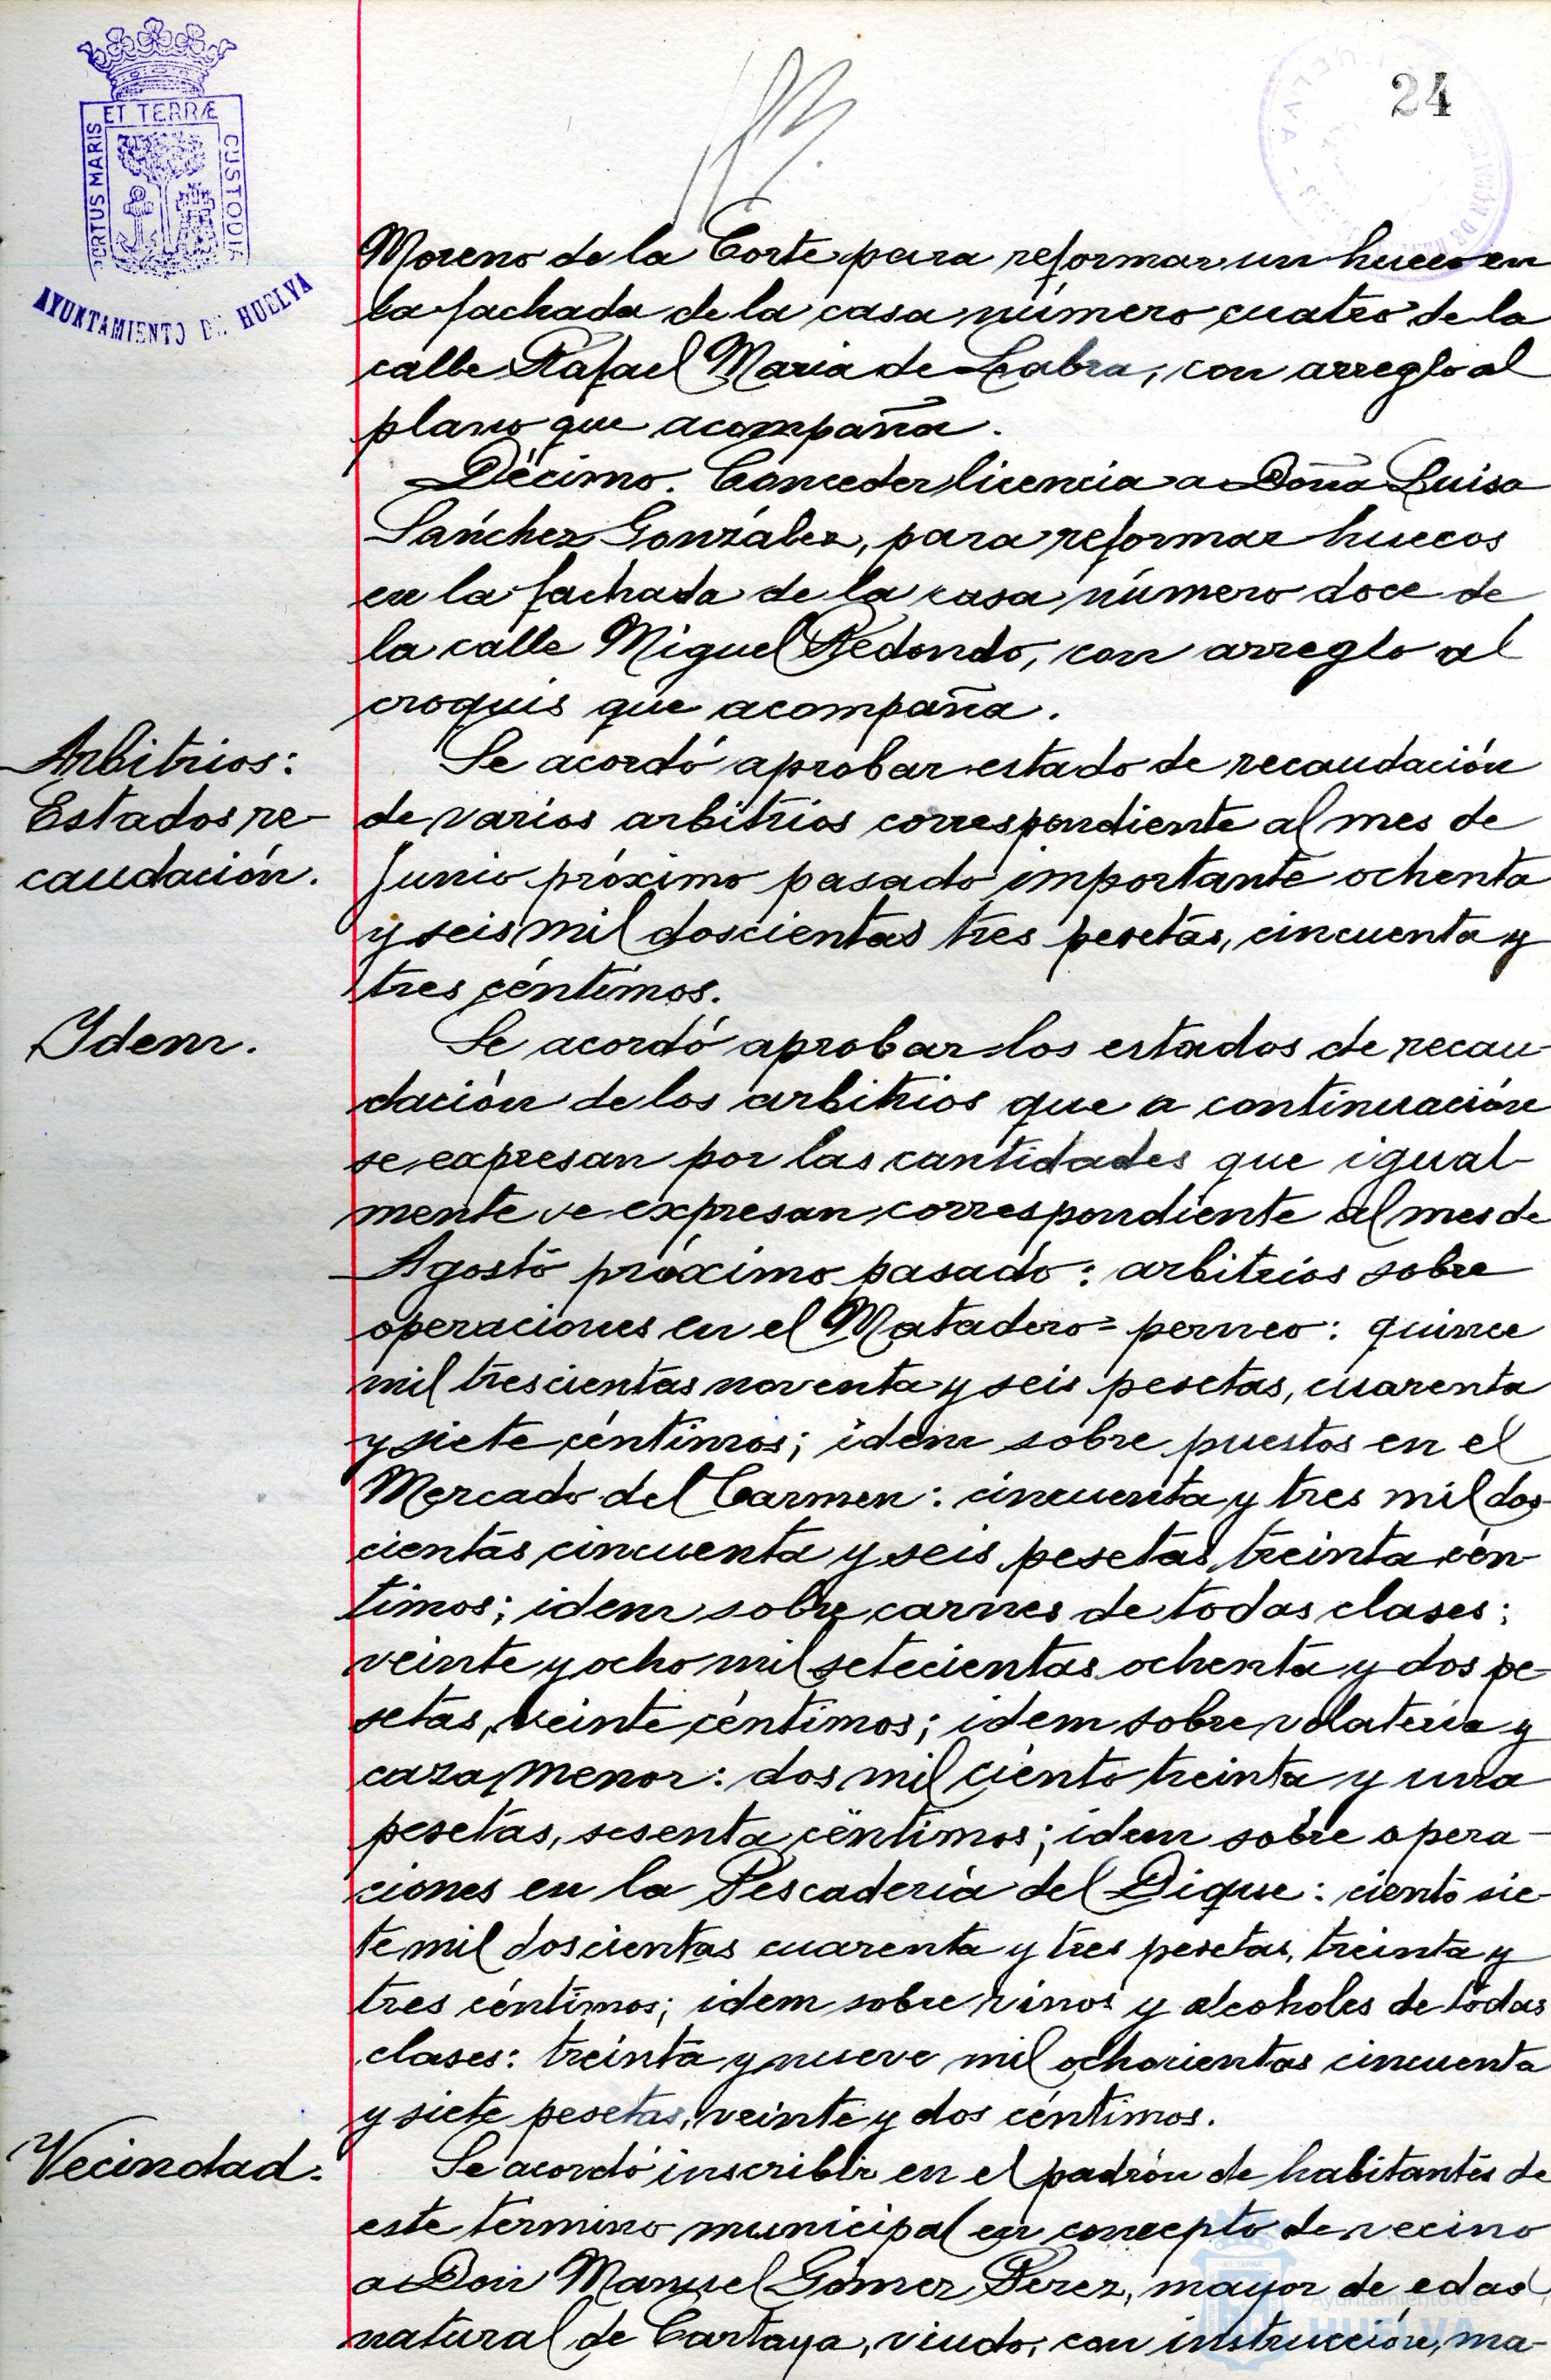 24
ET TERRÆ
PORTUS MARIS
CUSTODIA
AYUNTAMIENTO DE HUELVA
Moreno de la Corte para reformar un hueco en
la fachada de la casa número cuatro de la
calle Rafael Maria de Labra, con arreglo al
plano que acompaña.
Décimo. Conceder licencia a Doña Luisa
Sánchez González, para reformar huecos
en la fachada de la casa número doce de
la calle Miguel Redondo, con arreglo al
croquis que acompaña.
Arbitrios:
Estados re-
caudación.
Se acordó aprobar estado de recaudación
de varios arbitrios correspondiente al mes de
Junio próximo pasado importante ochenta
y seis mil doscientas tres pesetas, cincuenta y
tres céntimos.
Ydem.
Se acordó aprobar los estados de recau-
dación de los arbitrios que a continuación
se expresan por las cantidades que igual-
mente se expresan correspondiente al mes de
Agosto próximo pasado: arbitrios sobre
operaciones en el Matadero = perneo: quince
mil trescientas noventa y seis pesetas, cuarenta
y siete céntimos; idem sobre puestos en el
Mercado del Carmen: cincuenta y tres mil dos-
cientas cincuenta y seis pesetas, treinta cén-
timos; idem sobre carnes de todas clases:
veinte y ocho mil setecientas ochenta y dos pe-
setas, veinte céntimos; idem sobre volatería y
caza menor: dos mil ciento treinta y una
pesetas, sesenta céntimos; idem sobre opera-
ciones en la Pescadería del Dique: ciento sie-
te mil doscientas cuarenta y tres pesetas, treinta y
tres céntimos; idem sobre vinos y alcoholes de todas
clases: treinta y nueve mil ochocientas cincuenta
y siete pesetas, veinte y dos céntimos.
Vecindad.
Se acordó inscribir en el padrón de habitantes de
este término municipal en concepto de vecino
a Don Manuel Gómez Pérez, mayor de edad,
natural de Cartaya, viudo, con instrucción, ma-
Ayuntamiento de
HUELVA